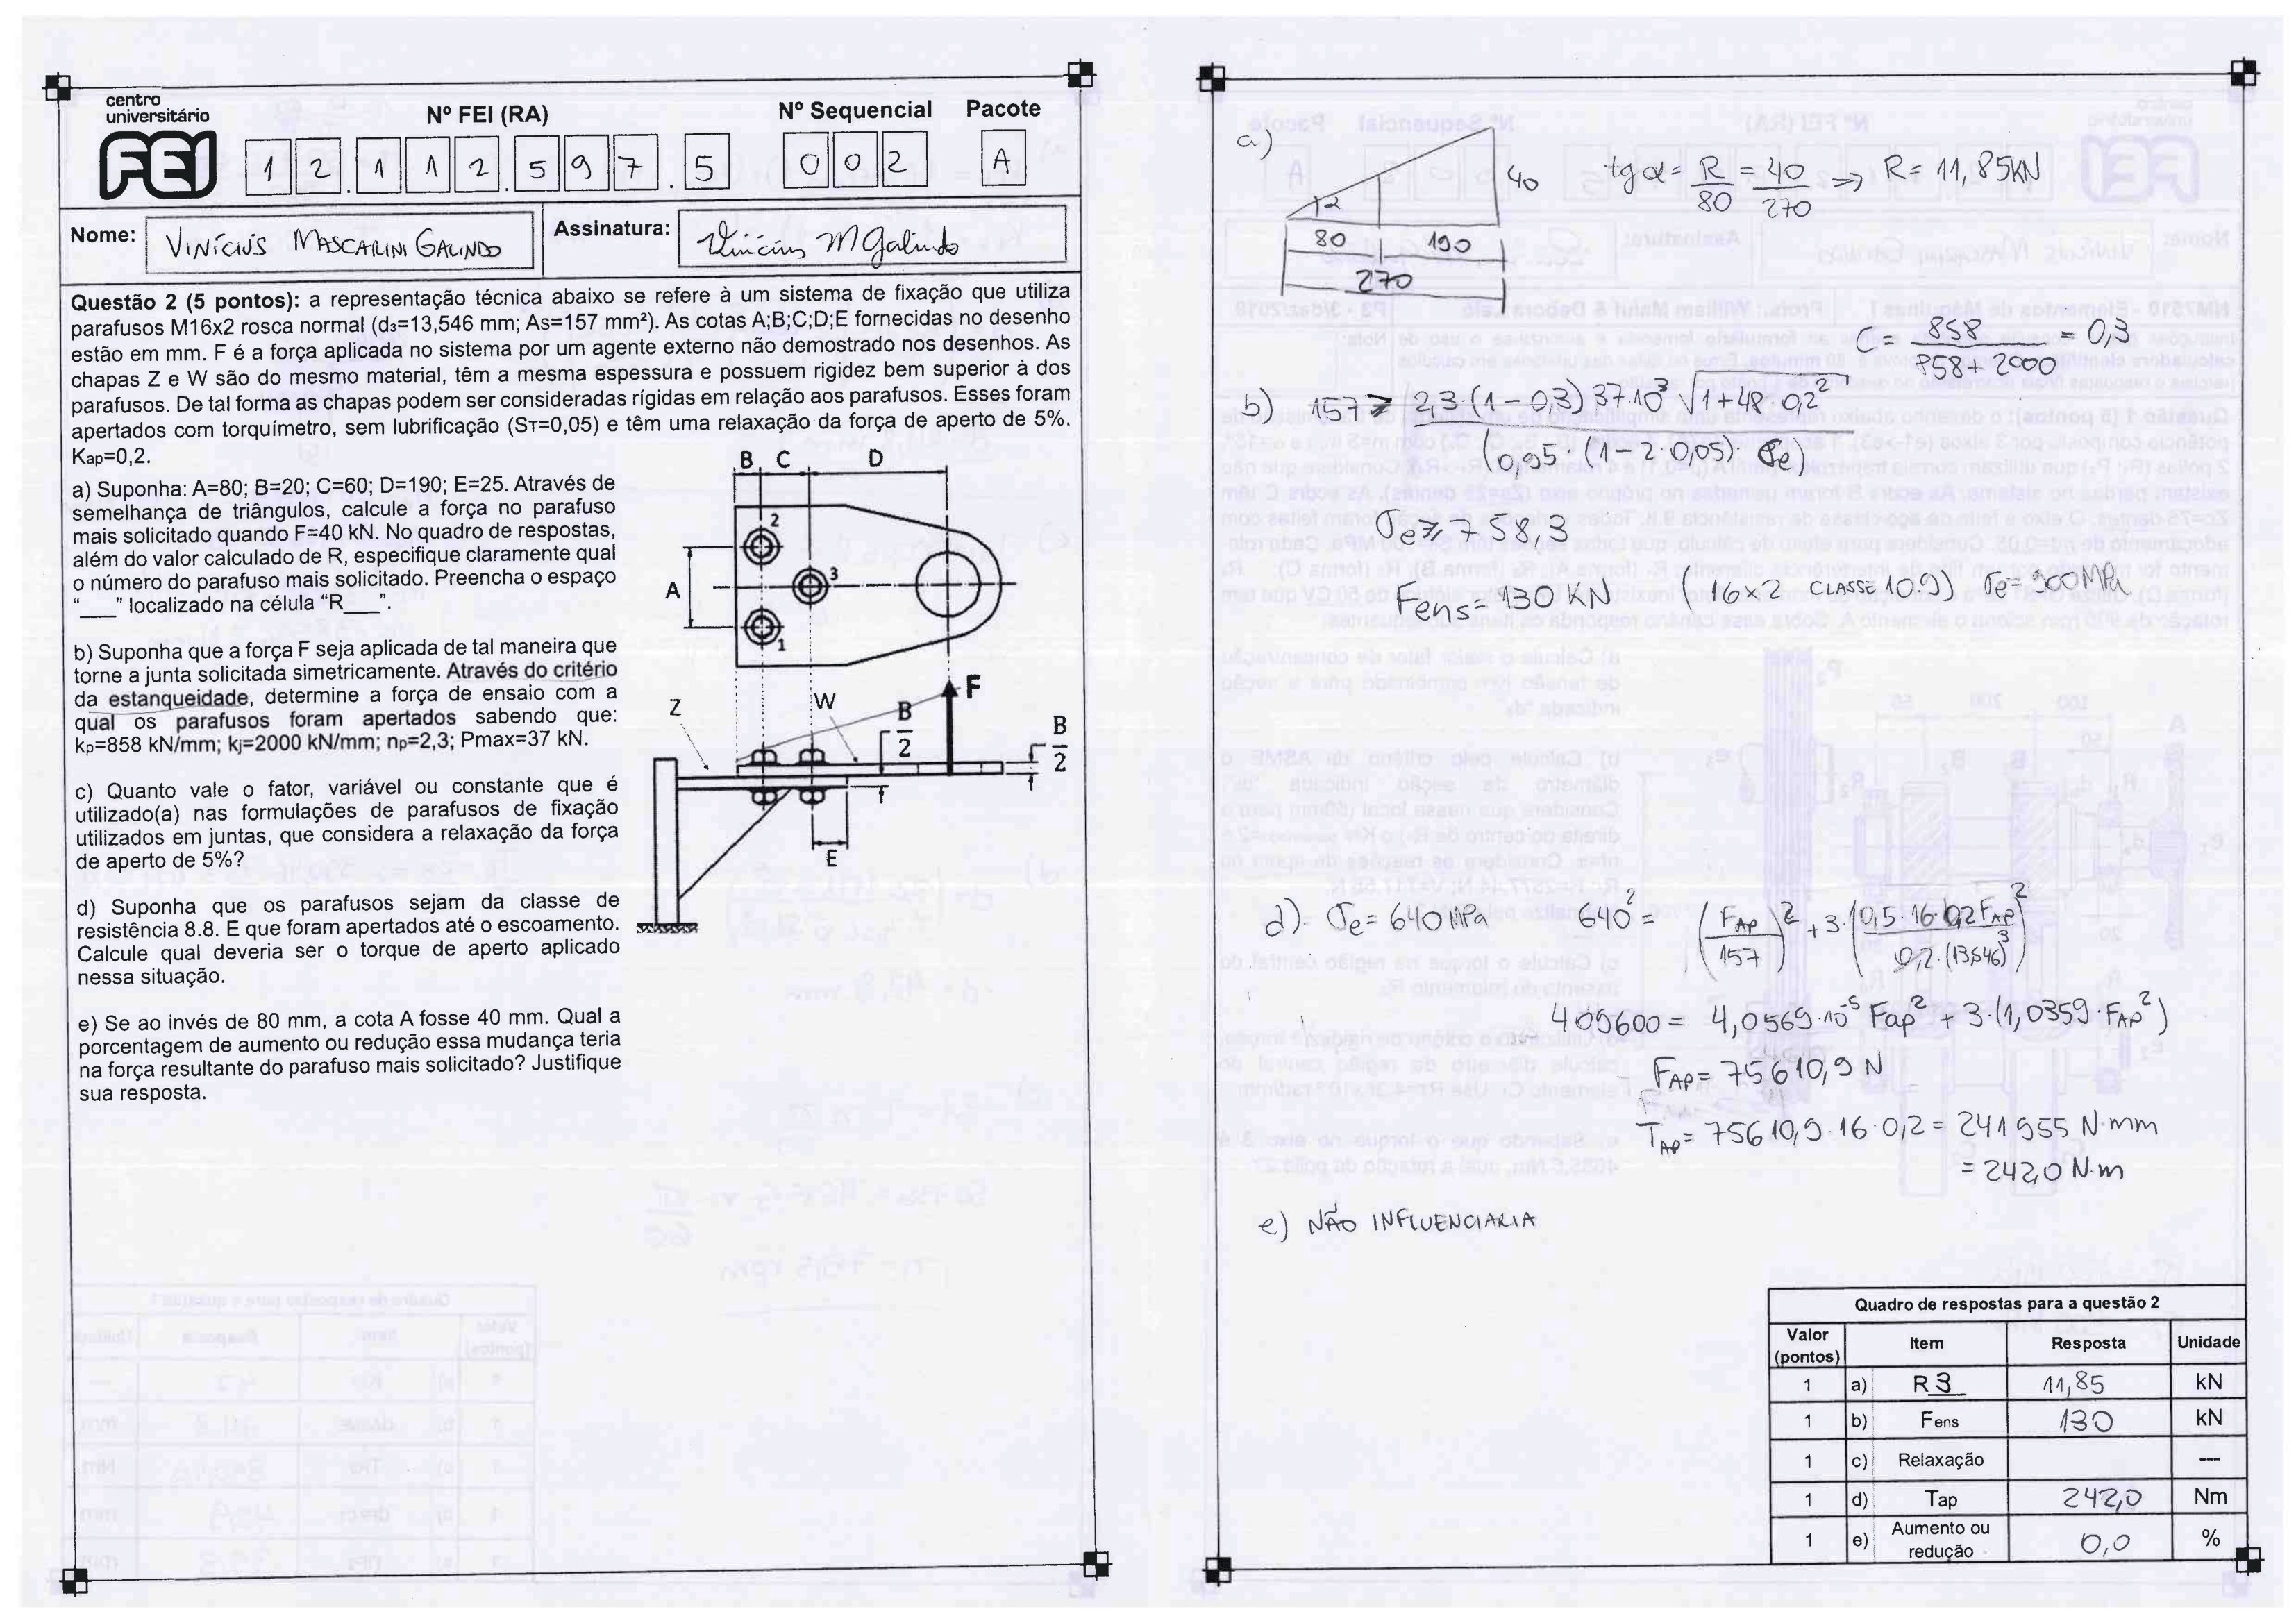 centro
universitário
FEI
Nº FEI (RA)
Nº Sequencial
Pacote
12.112.597.5
002
A
Nome:
VINÍCIUS MASCARINI GALINDO
Assinatura:
Vinícius M Galindo
Questão 2 (5 pontos): a representação técnica abaixo se refere à um sistema de fixação que utiliza
parafusos M16x2 rosca normal (d3=13,546 mm; As=157 mm²). As cotas A;B;C;D;E fornecidas no desenho
estão em mm. F é a força aplicada no sistema por um agente externo não demostrado nos desenhos. As
chapas Z e W são do mesmo material, têm a mesma espessura e possuem rigidez bem superior à dos
parafusos. De tal forma as chapas podem ser consideradas rígidas em relação aos parafusos. Esses foram
apertados com torquímetro, sem lubrificação (ST=0,05) e têm uma relaxação da força de aperto de 5%.
Kap=0,2.
a) Suponha: A=80; B=20; C=60; D=190; E=25. Através de
semelhança de triângulos, calcule a força no parafuso
mais solicitado quando F=40 kN. No quadro de respostas,
além do valor calculado de R, especifique claramente qual
o número do parafuso mais solicitado. Preencha o espaço
“___” localizado na célula “R___”.
b) Suponha que a força F seja aplicada de tal maneira que
torne a junta solicitada simetricamente. Através do critério
da estanqueidade, determine a força de ensaio com a
qual os parafusos foram apertados sabendo que:
kp=858 kN/mm; kj=2000 kN/mm; np=2,3; Pmax=37 kN.
c) Quanto vale o fator, variável ou constante que é
utilizado(a) nas formulações de parafusos de fixação
utilizados em juntas, que considera a relaxação da força
de aperto de 5%?
d) Suponha que os parafusos sejam da classe de
resistência 8.8. E que foram apertados até o escoamento.
Calcule qual deveria ser o torque de aperto aplicado
nessa situação.
e) Se ao invés de 80 mm, a cota A fosse 40 mm. Qual a
porcentagem de aumento ou redução essa mudança teria
na força resultante do parafuso mais solicitado? Justifique
sua resposta.
B C D
2
A
3
1
Z
W
B
2
F
B
2
E
a)
40
80 190
270
tg α = R/80 = 40/270 => R = 11,85KN
C = 858/(858+2000) = 0,3
b) 157 ≥ 2,3·(1-0,3)37·10³ √1+48·0,2²
(0,95·(1-2·0,05)·σe)
σe ≥ 758,3
Fens = 130 KN (16x2 CLASSE 109) σe = 900MPa
d) σe = 640 MPa 640² = (FAP/157)² + 3·(0,5·16·0,2 FAP/0,2·(13,546)³)²
409600 = 4,0569·10⁻⁵ Fap² + 3·(1,0359·FAP²)
FAP = 75610,9 N
TAP = 75610,9·16·0,2 = 241955 N·mm
= 242,0 N·m
e) NÃO INFLUENCIARIA
Quadro de respostas para a questão 2
Valor (pontos) Item Resposta Unidade
1 a) R 3 11,85 kN
1 b) Fens 130 kN
1 c) Relaxação ---
1 d) Tap 242,0 Nm
1 e) Aumento ou redução 0,0 %